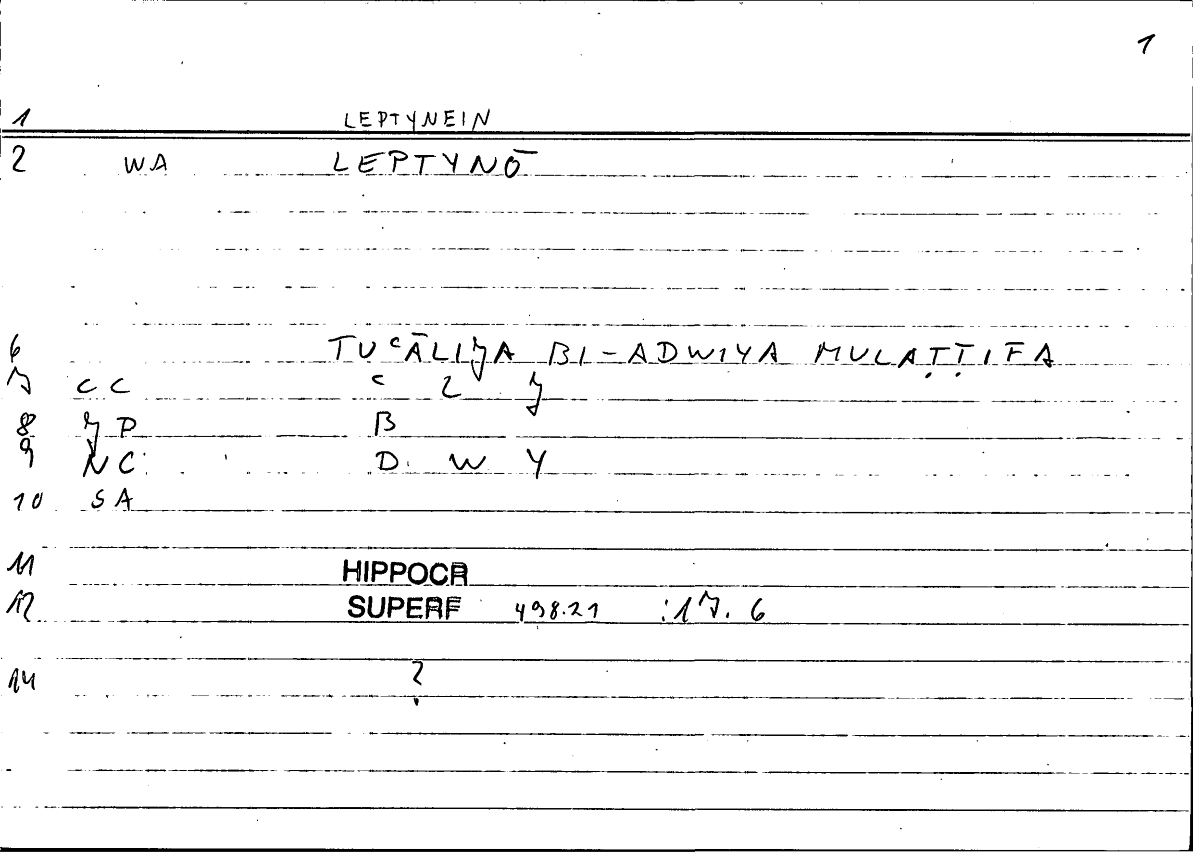 1
1 LEPTYNEIN
2 WA LEPTYNŌ
6 TUᶜĀLIJA BI-ADWIYA MULAṬṬIFA
7 CC ᶜ L J
8 JP B
9 NC D W Y
10 SA
11 HIPPOCR
12 SUPERF 498.21 :17.6
14 ?